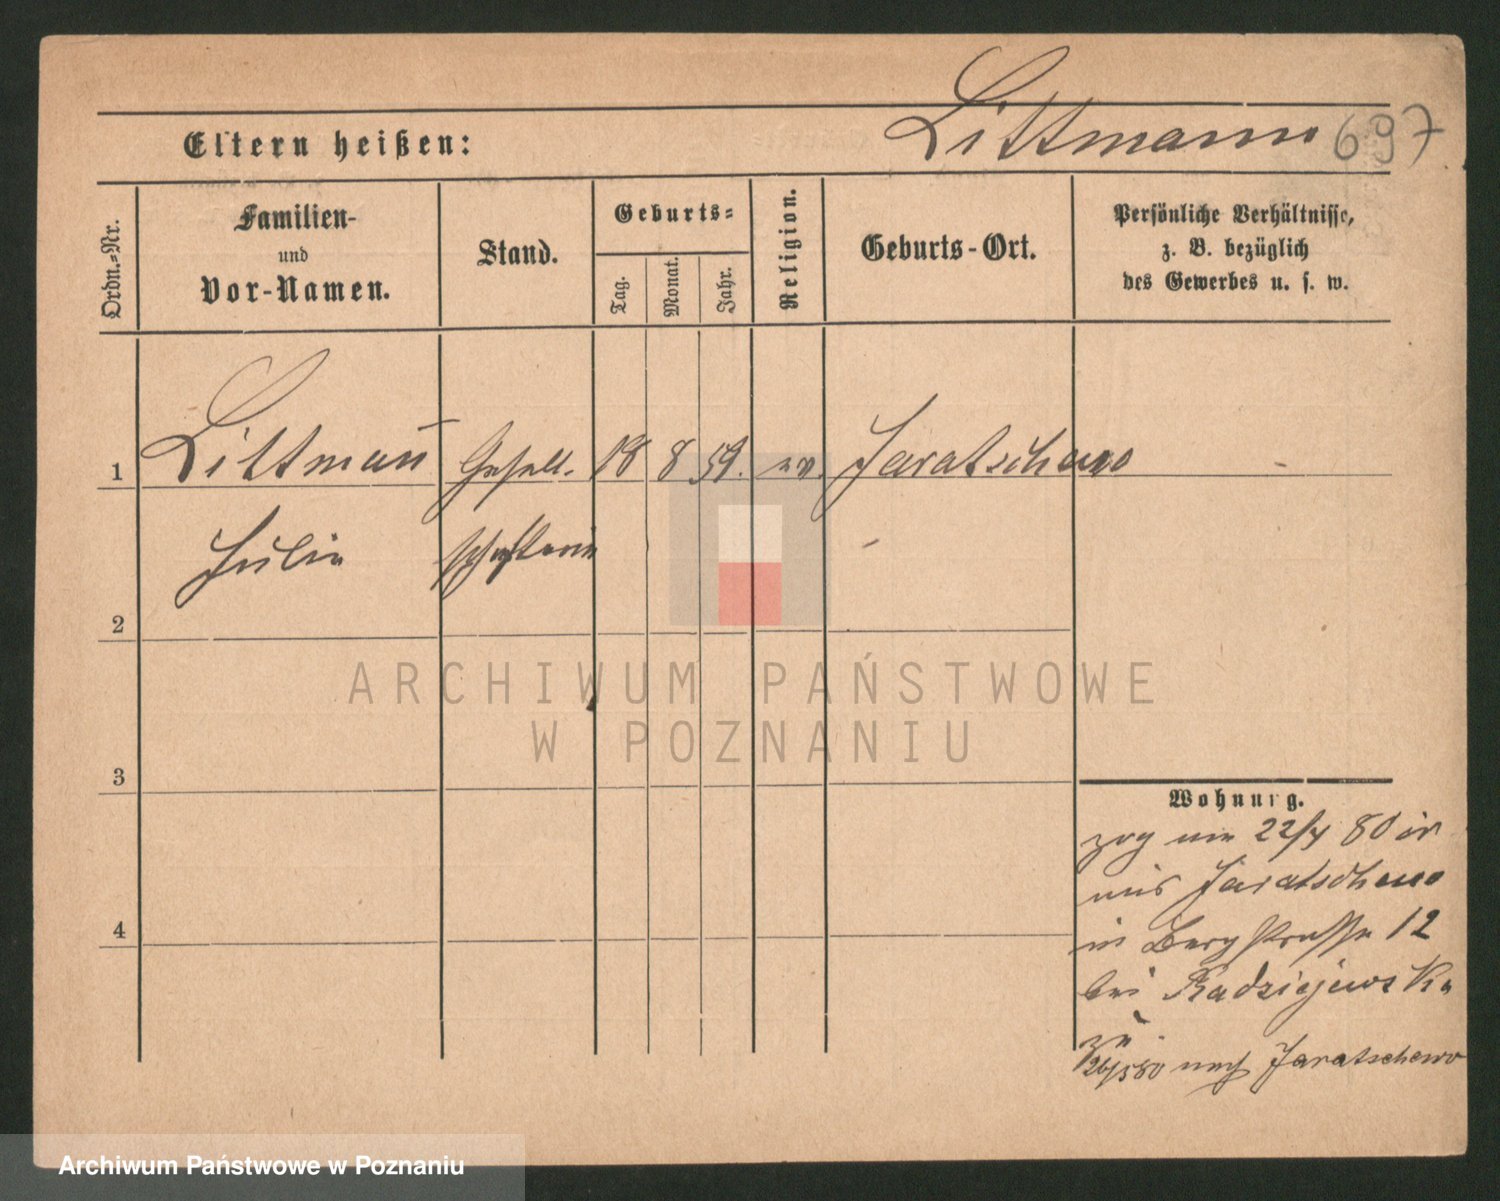 Littmann 697
Eltern heißen:
Ordn.-Nr.
Familien-
und
Vor-Namen.
Stand.
Geburts-
Tag.
Monat.
Jahr.
Religion.
Geburts-Ort.
Persönliche Verhältnisse,
z. B. bezüglich
des Gewerbes u. s. w.
1 Littmañ Gesell. 18 8 59. ev. Jaratschewo -
Julie schafterin -
2
ARCHIWUM PAŃSTWOWE
W POZNANIU
3
Wohnung.
zog am 22/4 80 ein
aus Jaratschewo
in Bergstraße 12
bei Radziejewska
zu.
26/5 80 nach Jaratschewo
4
Archiwum Państwowe w Poznaniu